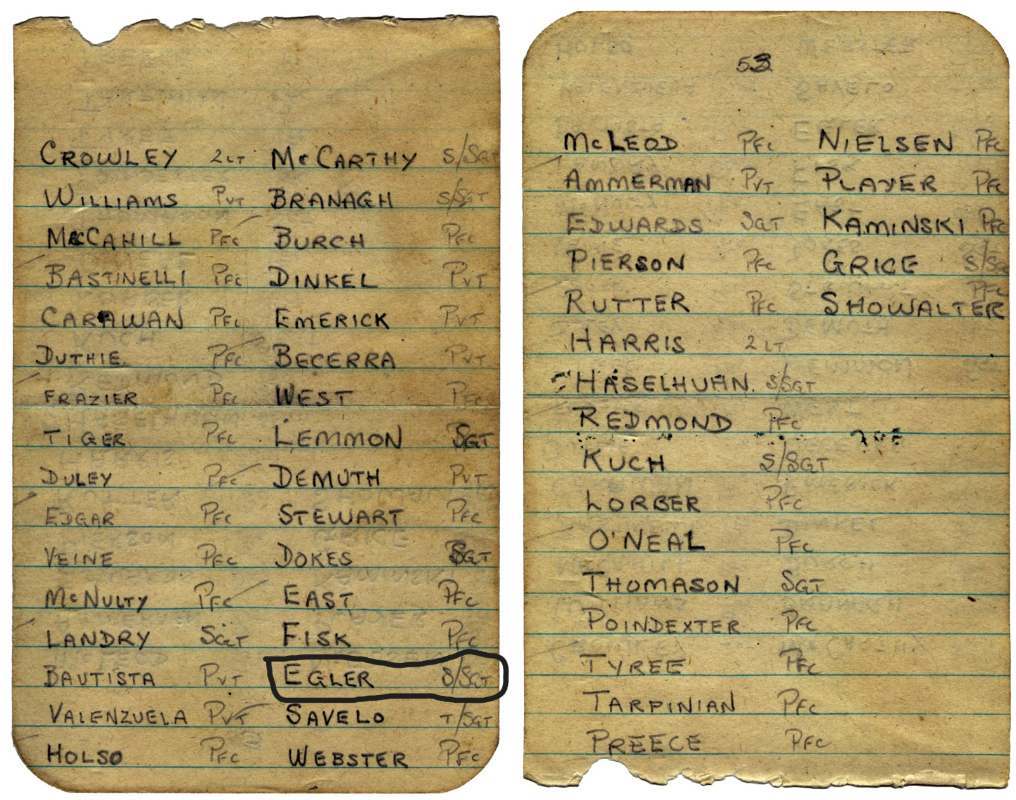 CROWLEY 2LT McCARTHY S/SGT
WILLIAMS PVT BRANAGH S/SGT
McCAHILL PFC BURCH PFC
BASTINELLI PFC DINKEL PVT
CARAWAN PFC EMERICK PVT
DUTHIE PFC BECERRA PVT
FRAZIER PFC WEST PFC
TIGER PFC LEMMON SGT
DULEY PFC DEMUTH PVT
EDGAR PFC STEWART PFC
VEINE PFC DOKES SGT
McNULTY PFC EAST PFC
LANDRY SGT FISK PFC
BAUTISTA PVT EGLER S/SGT
VALENZUELA PVT SAVELO T/SGT
HOLSO PFC WEBSTER PFC
53
McLEOD PFC NIELSEN PFC
AMMERMAN PVT PLAYER PFC
EDWARDS SGT KAMINSKI PFC
PIERSON PFC GRICE S/SGT
RUTTER PFC SHOWALTER PFC
HARRIS 2LT
HASELHUHN S/SGT
REDMOND PFC
KUCH S/SGT
LORBER PFC
O'NEAL PFC
THOMASON SGT
POINDEXTER PFC
TYREE PFC
TARPINIAN PFC
PREECE PFC